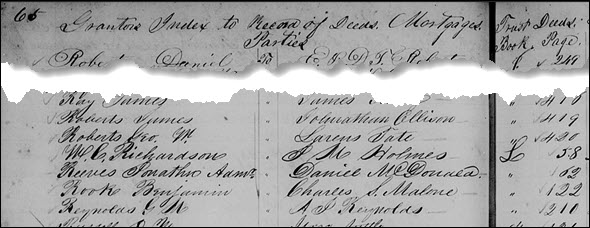 65 Grantors Index to Record of Deeds. Mortgages. Trust Deeds.
Parties Book. Page.
Daniel 249
Ray James James 410
Roberts James Johnathan Ollison 419
Roberts Geo. W. Larens Tate 420
W. C. Richardson J. M. Holmes L 58
Reeves Jonathn Admr Daniel McDonald 62
Rook Benjamin Charles S. Malone 122
Reynolds G W A J Reynolds 210